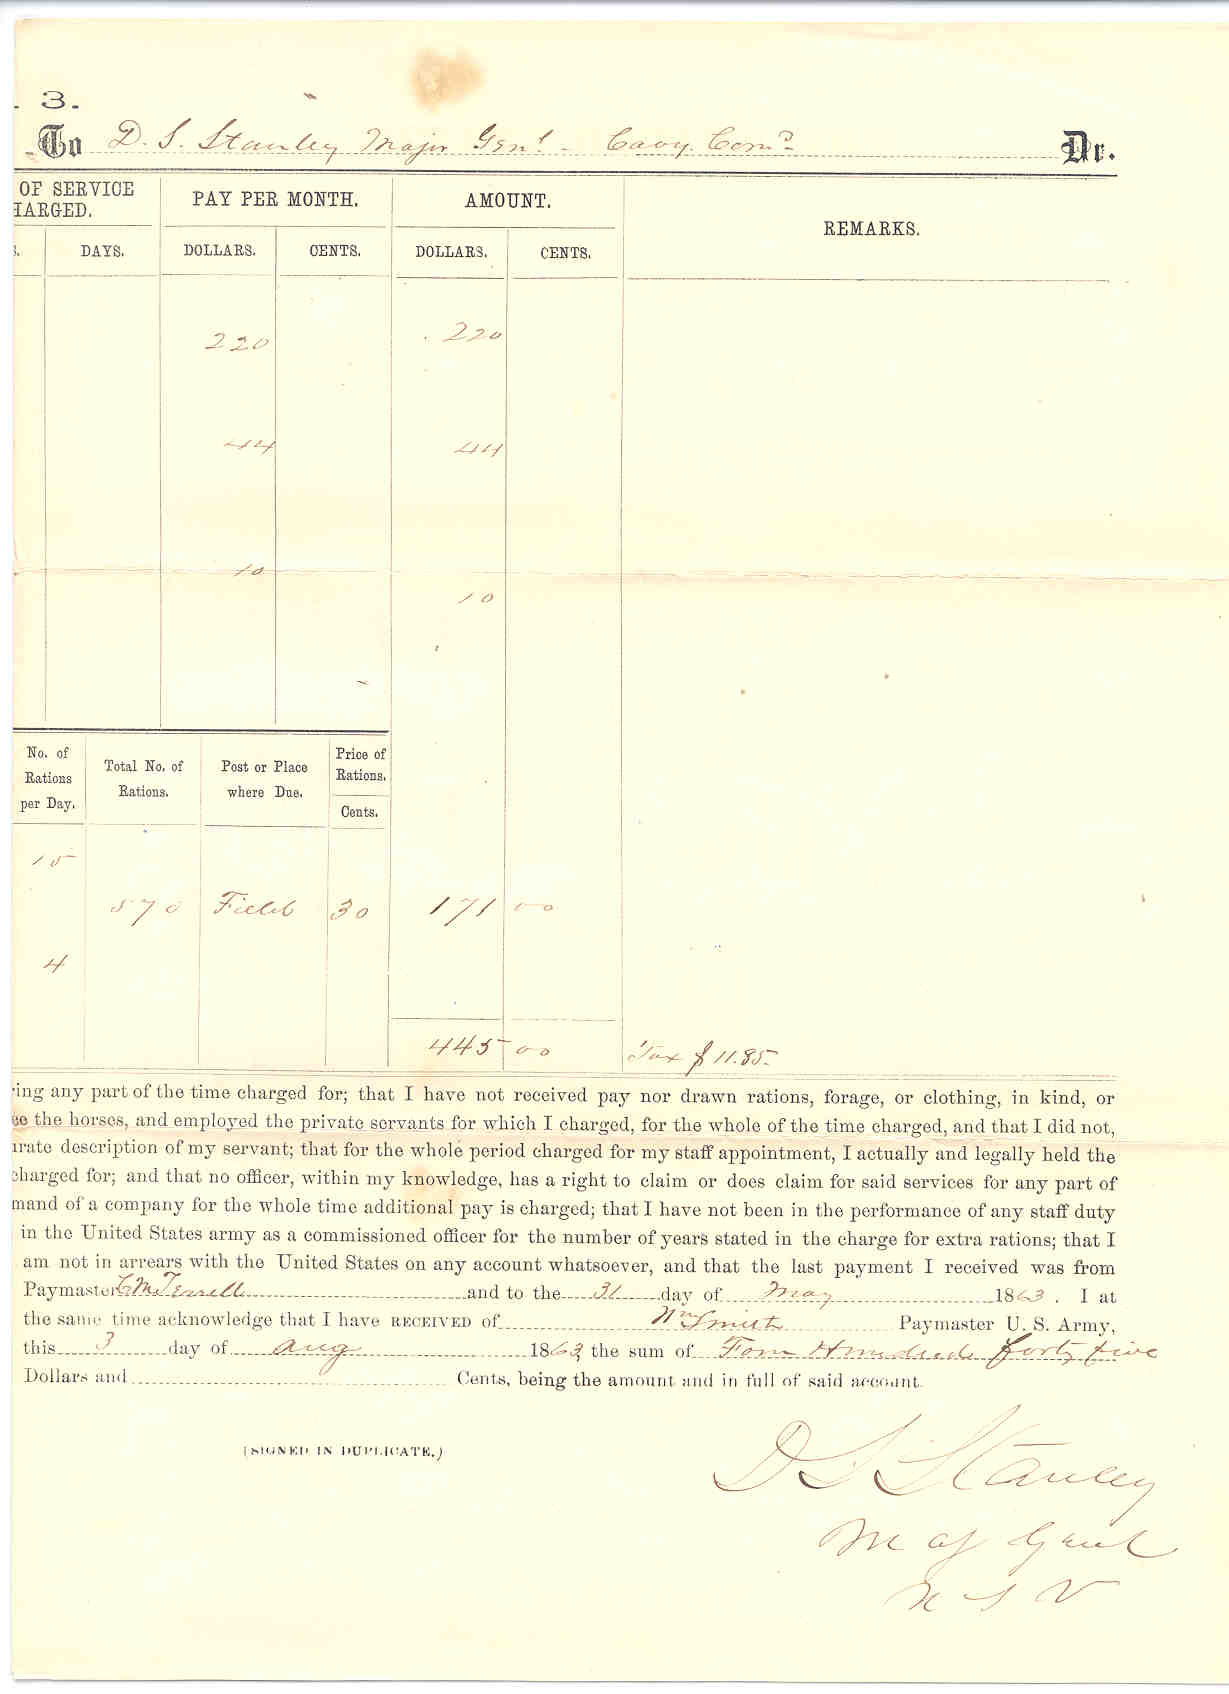 . 3.
To D. S. Stanley Major Genl - Cavy. Comd Dr.
OF SERVICE
HARGED.
PAY PER MONTH.
AMOUNT.
REMARKS.
S.
DAYS.
DOLLARS.
CENTS.
DOLLARS.
CENTS.
220
220
44
44
10
10
No. of
Rations
per Day.
Total No. of
Rations.
Post or Place
where Due.
Price of
Rations.
Cents.
15
570 Field 30 171 00
4
445 00 Tax $ 11.85
ring any part of the time charged for; that I have not received pay nor drawn rations, forage, or clothing, in kind, or
ce the horses, and employed the private servants for which I charged, for the whole of the time charged, and that I did not,
urate description of my servant; that for the whole period charged for my staff appointment, I actually and legally held the
charged for; and that no officer, within my knowledge, has a right to claim or does claim for said services for any part of
mand of a company for the whole time additional pay is charged; that I have not been in the performance of any staff duty
in the United States army as a commissioned officer for the number of years stated in the charge for extra rations; that I
am not in arrears with the United States on any account whatsoever, and that the last payment I received was from
Paymaster C M Terrell and to the 31 day of May 1863. I at
the same time acknowledge that I have RECEIVED of Wm Smith Paymaster U. S. Army,
this 3 day of Aug 1863, the sum of Four Hundred forty five
Dollars and Cents, being the amount and in full of said account.
(SIGNED IN DUPLICATE.)
D S Stanley
Maj Genl
U S V